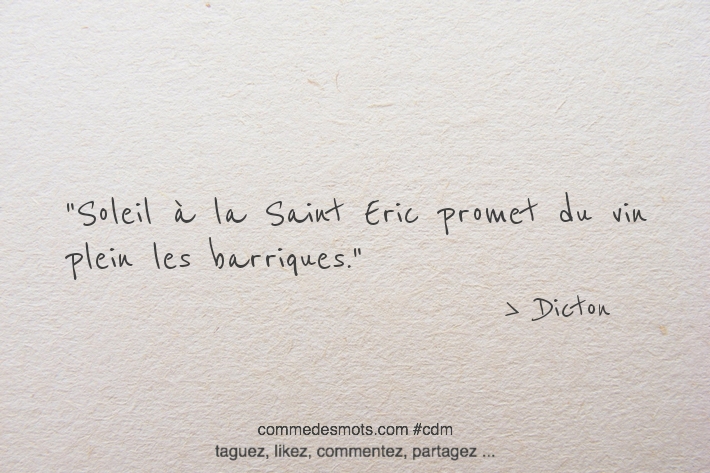 "Soleil à la Saint Eric promet du vin
plein les barriques."
> Dicton
commedesmots.com #cdm
taguez, likez, commentez, partagez ...